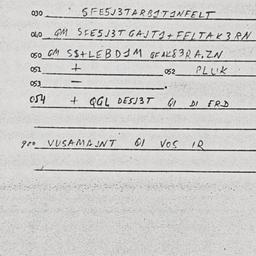 030 SFESJ3TARBJTJNFELT
040 GM SFESJ3T GAJTJ+FELTAK3RN
050 GM S$+LEBDJM GFAK83RA,ZN
051 + 052 PLUK
053 -
054 + QGL DESJ3T GI DI FRD
900 VUSAMAJNT GI VOS IR